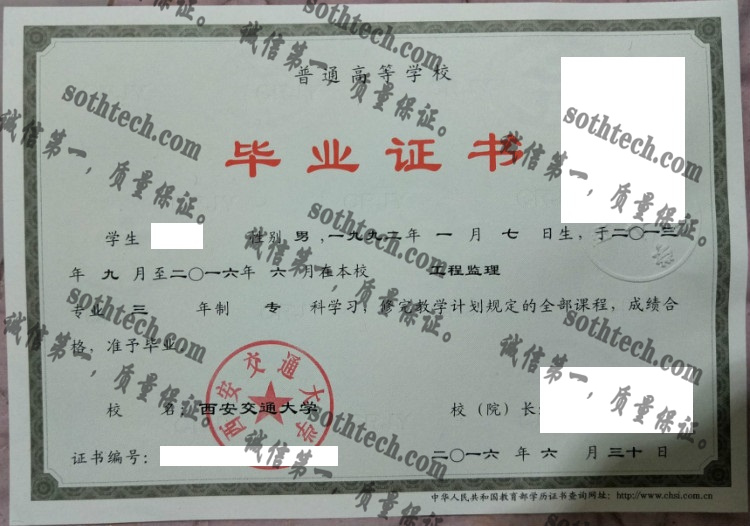 普通高等学校
毕业证书
学生 性别 男 ,一九九二年 一 月 七 日生, 于二〇一三
年 九 月至二〇一六年 六 月在本校 工程监理
专业 三 年制 专 科学习, 修完教学计划规定的全部课程, 成绩合
格, 准予毕业
校 名: 西安交通大学 校(院)长:
西安交通大学
证书编号: 二〇一六 年 六 月 三十 日
中华人民共和国教育部学历证书查询网址: http://www.chsi.com.cn
sothtech.com
诚信第一, 质量保证。
sothtech.com
诚信第一, 质量保证。
sothtech.com
诚信第一, 质量保证。
sothtech.com
诚信第一, 质量保证。
sothtech.com
诚信第一, 质量保证。
sothtech.com
诚信第一, 质量保证。
sothtech.com
诚信第一, 质量保证。